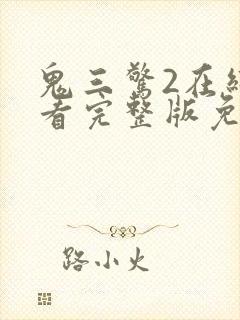 鬼三驚2在
看完整版免
路小火